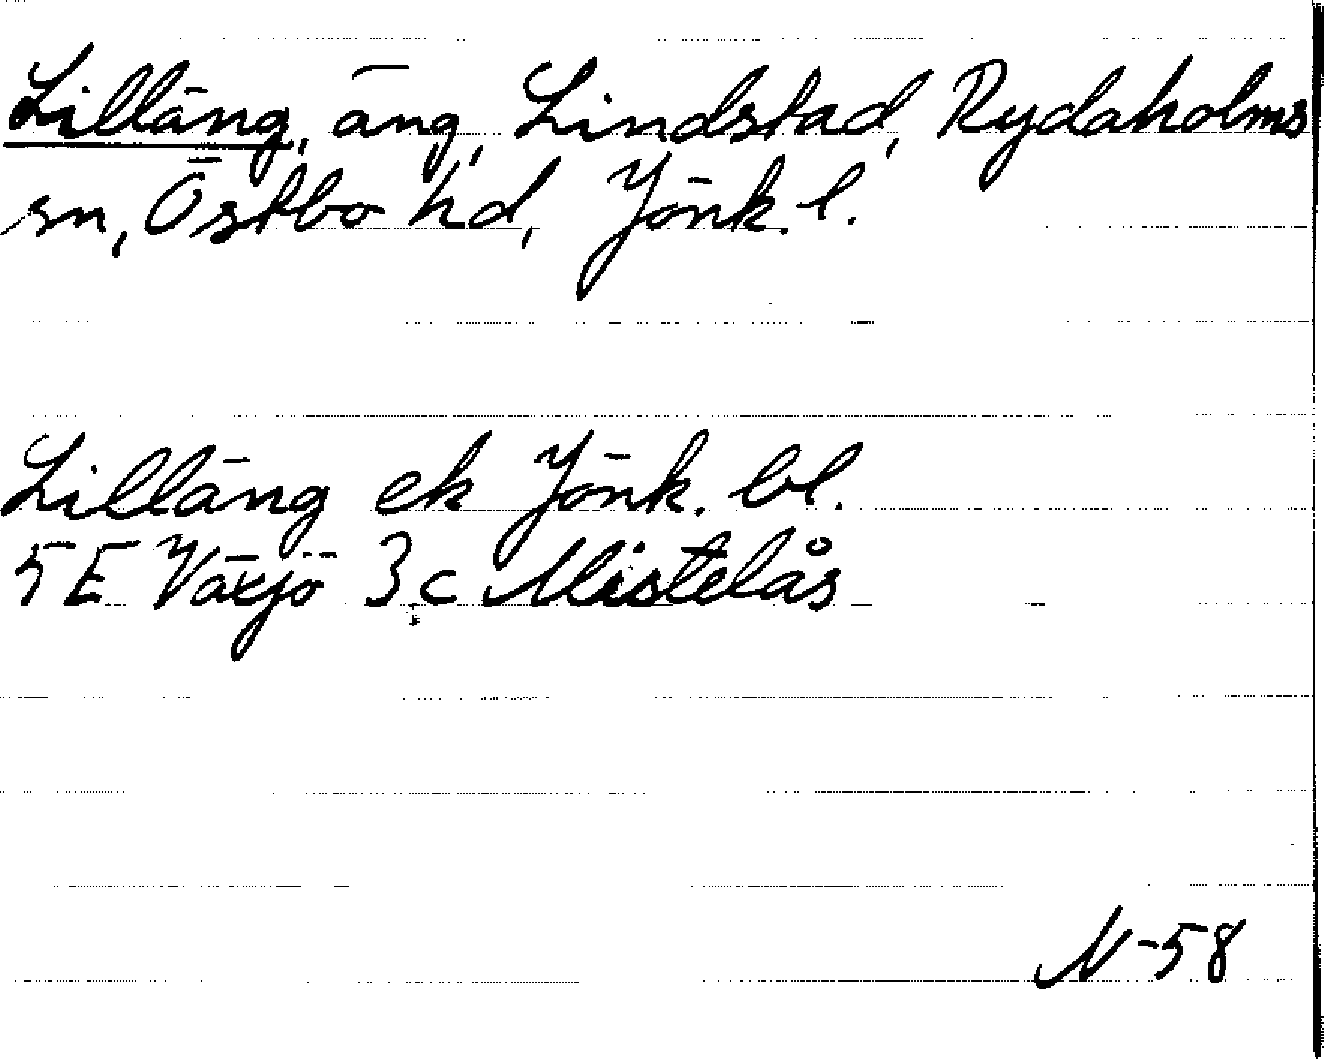 Lilläng, äng, Lindstad, Rydaholms
sn, Östbo hd, Jönk. l.
Lilläng ek Jönk. bl.
5E Växjö 3c Mistelås
N-58